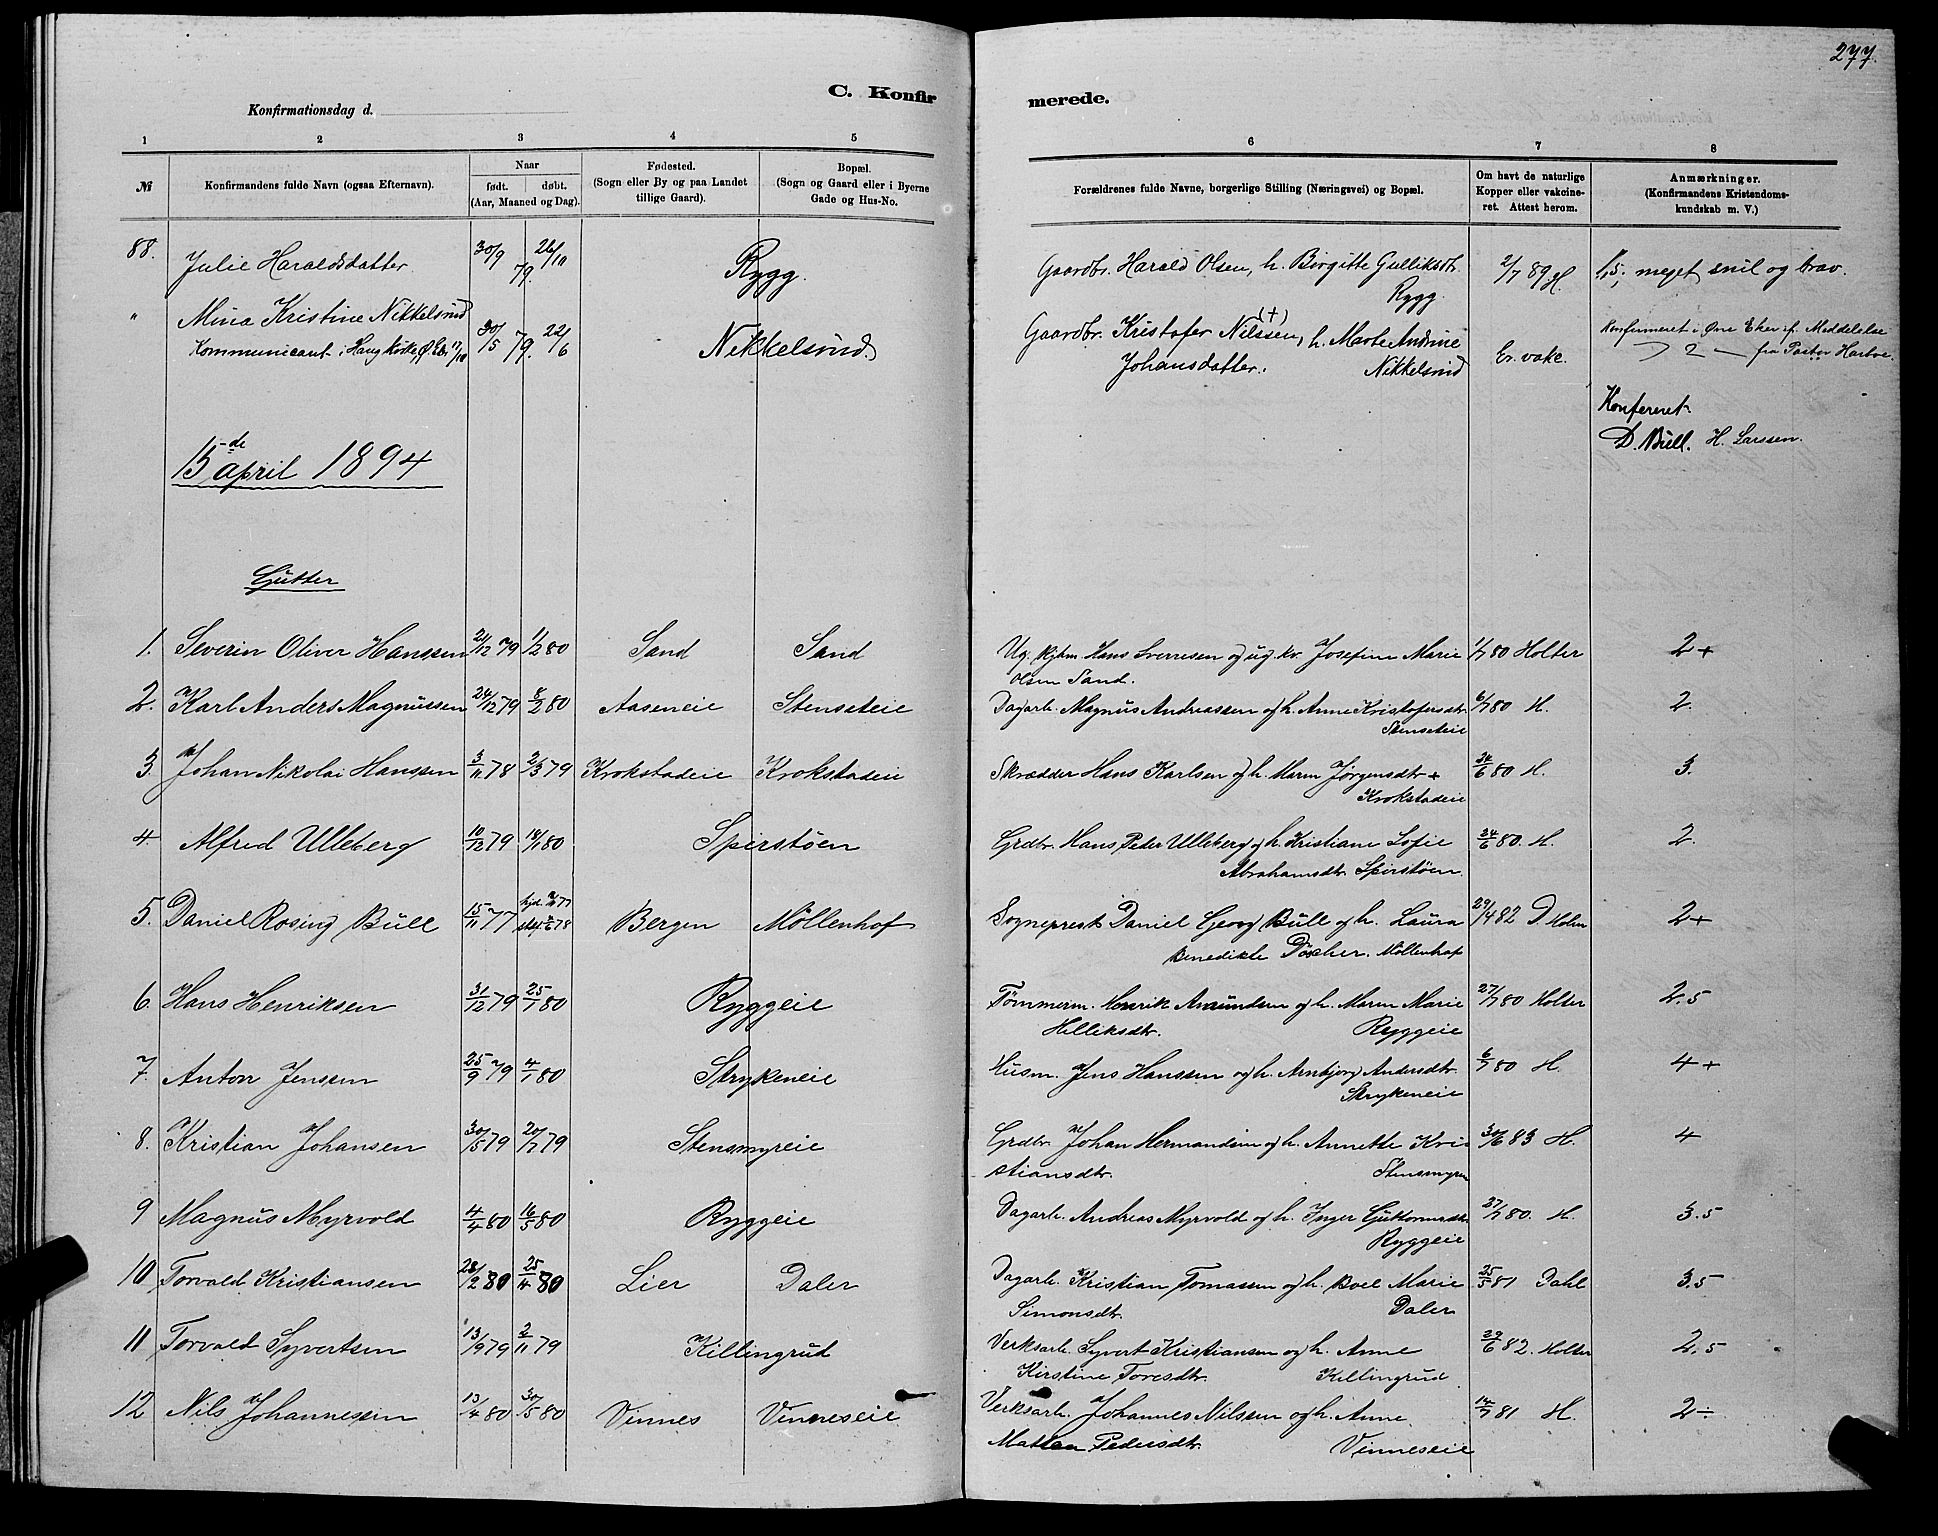 277.
C. Konfir
merede.
Konfirmationsdag d.
1 2 3 4 5 6 7 8
№
Konfirmandens fulde Navn (ogsaa Efternavn).
Naar
født. døbt.
(Aar, Maaned og Dag).
Fødested.
(Sogn eller By og paa Landet
tillige Gaard).
Bopæl.
(Sogn og Gaard eller i Byerne
Gade og Hus-No.
Forældrenes fulde Navne, borgerlige Stilling (Næringsvei) og Bopæl.
Om havt de naturlige
Kopper eller vakcine-
ret. Attest herom.
Anmærkninger.
(Konfirmandens Kristendoms-
kundskab m. V.)
88. Julie Haraldsdatter 30/9 79. 26/10 Rygg. Gaardbr. Harald Olsen, h. Birgitte Gulliksdtr. 2/7 89 H. 1,5; meget snil og brav.
Rygg.
" Mina Kristine Nikkelsrud 30/5 79. 22/6 Nikkelsrud Gaardbr. Kristofer Nilssen, (+) h. Marte Andrine Er vakc. Konfirmeret i Øvre Eker if. Meddelelse
Kommunicant i Haug Kirke Ø. Eker 17/10 Johansdatter. Nikkelsrud 2 — fra Pastor
Konfereret
D. Bull. H. Larssen.
15de april 1894
Gutter
1. Severin Oliver Hanssen 21/12 79 1/2 80 Sand Sand Ug. Hans Sverresen og ug. kv. Josefine Marie 1/7 80 Holter 2+
Olsen Sand.
2. Karl Anders Magnussen 24/12 79 8/2 80 Aaseneie Stenseteie Dagarb. Magnus Andreassen og h. Anne Kristofersdtr. 6/7 80 H. 2.
Stenseteie
3. Johan Nikolai Hanssen 3/11 78 2/3 79 Krokstadeie Krokstadeie Skrædder Hans Karlsen og h. Maren Jørgensdtr + 24/6 80 H. 3.
Krokstadeie
4. Alfred Ulleberg 10/12 79 18/1 80 Spirstøen Grdbr. Hans Peder Ulleberg og h. Kristiane Sofie 24/6 80. H. 2.
Abrahamsdtr. Spirstøen.
5. Daniel Rosing Bull 15/11 77 Bergen Møllenhof Sogneprest Daniel Georg Bull og h. Laura 29/4 82 D Holm 2+
Benedikte Døscher. Møllenhof
6. Hans Henriksen 31/12 79 25/1 80 Ryggeie Tømmerm. Henrik Amundsen og h. Maren Marie 27/7 80 Holter 2.5
Helliksdtr. Ryggeie
7. Anton Jenssen 25/9 79 4/1 80 Strykeneie Husm. Jens Hanssen og h. Arnbjørg Andersdtr. 6/7 80 H. 4+
Strykeneie
8. Kristian Johansen 30/5 79 20/7 79 Stensmyreie Grdbr. Johan Hermandsen og h. Annette Kri 30/6 83 H. 4
stiansdtr. Stensmyren
9 Magnus Myrvold 4/4 80 16/5 80 Ryggeie Dagarb. Andreas Myrvold og h. Inger 27/7 80. H. 3.5
Ryggeie
10 Torvald Kristiansen 28/2 80 25/4 80 Lier Daler Dagarb. Kristian Tomassen og h. Boel Marie 25/5 81 Dahl 3.5
Simonsdtr. Daler
11 Torvald Syvertsen 13/9 79 2/11 79 Killingrud Verksarb. Syvert Kristiansen og h. Anne 29/6 82. Holter 2.5
Kirstine Toresdtr. Killingrud
12 Nils Johannessen 13/4 80 30/5 80 Vinnes Vinneseie Verksarb. Johannes Nilssen og h. Anne 14/7 81 H. 2÷
Mattea Pedersdtr. Vinneseie